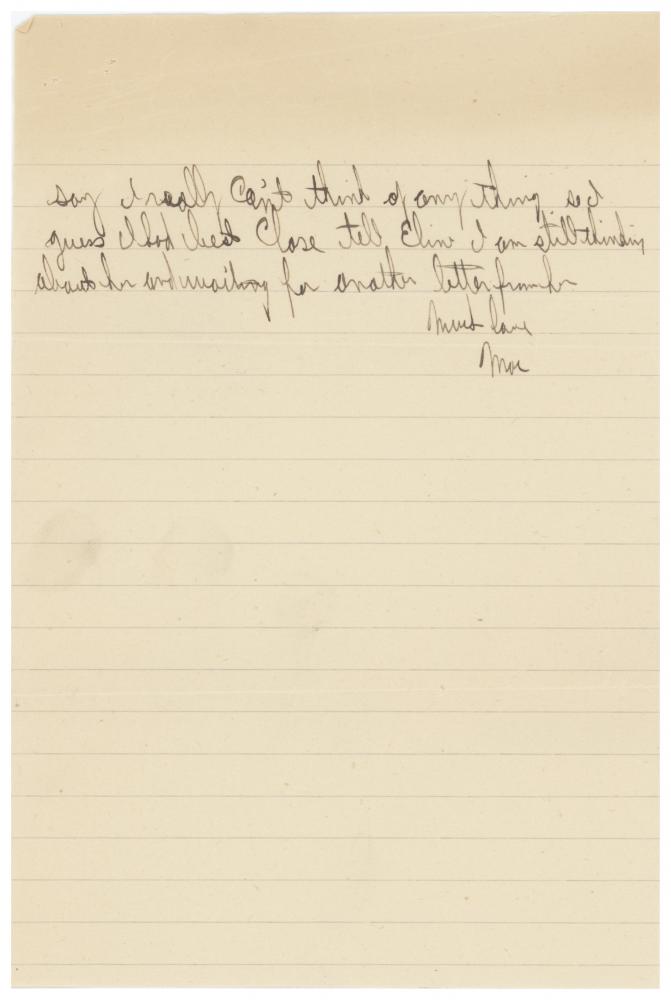 say I really Can't think of any thing so I
guess I had best Close tell I am still thinking
about her and waiting for another letter from her
Much love
Moe